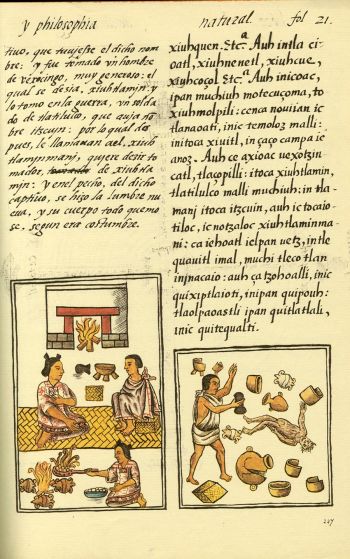 y philosophia natural. fol 21.
tiuo, que tuuiesse el dicho nom
bre: y fue tomado vn hombre
de vexocingo, muy generoso: el
qual se dezia, xiuhtlamin: y
lo tomo en la guerra, vn solda
do de tlatilulco, que auja no
bre itzcuin: por lo qual des
pues, le llamauan ael, xiuh
tlaminmanj, qujere dezir to
mador, de xiuhtla
mjn: y en el pecho, del dicho
captiuo, se hizo la lumbre nu
eua, y su cuerpo todo quemo
se, segun era costumbre.
xiuhquen. Etc.ª Auh intla ci
oatl, xiuhnenetl, xiuhcue,
xiuhcoçol Etc.ª Auh inicoac,
ipan muchiuh motecuçoma, to
xiuhmolpili: cenca nouian ic
tlanaoati, inic temoloz malli:
initoca xiuitl, in çaço campa ie
anoz. Auh ce axioac uexotzin
catl, tlaçopilli: itoca xiuhtlamin,
tlatilulco malli muchiuh: in tla
manj itoca itzcuin, auh ic tocaio
tiloc, ic notzaloc xiuhtlaminma
ni: ca iehoatl ielpan uetz, in tle
quauitl imal, muchi tleco tlan
injnacaio: auh ça tzohoalli, inic
quixiptlaioti, inipan quipouh:
tlaolpaoastli ipan quitlatlali,
inic quitequalti.
227